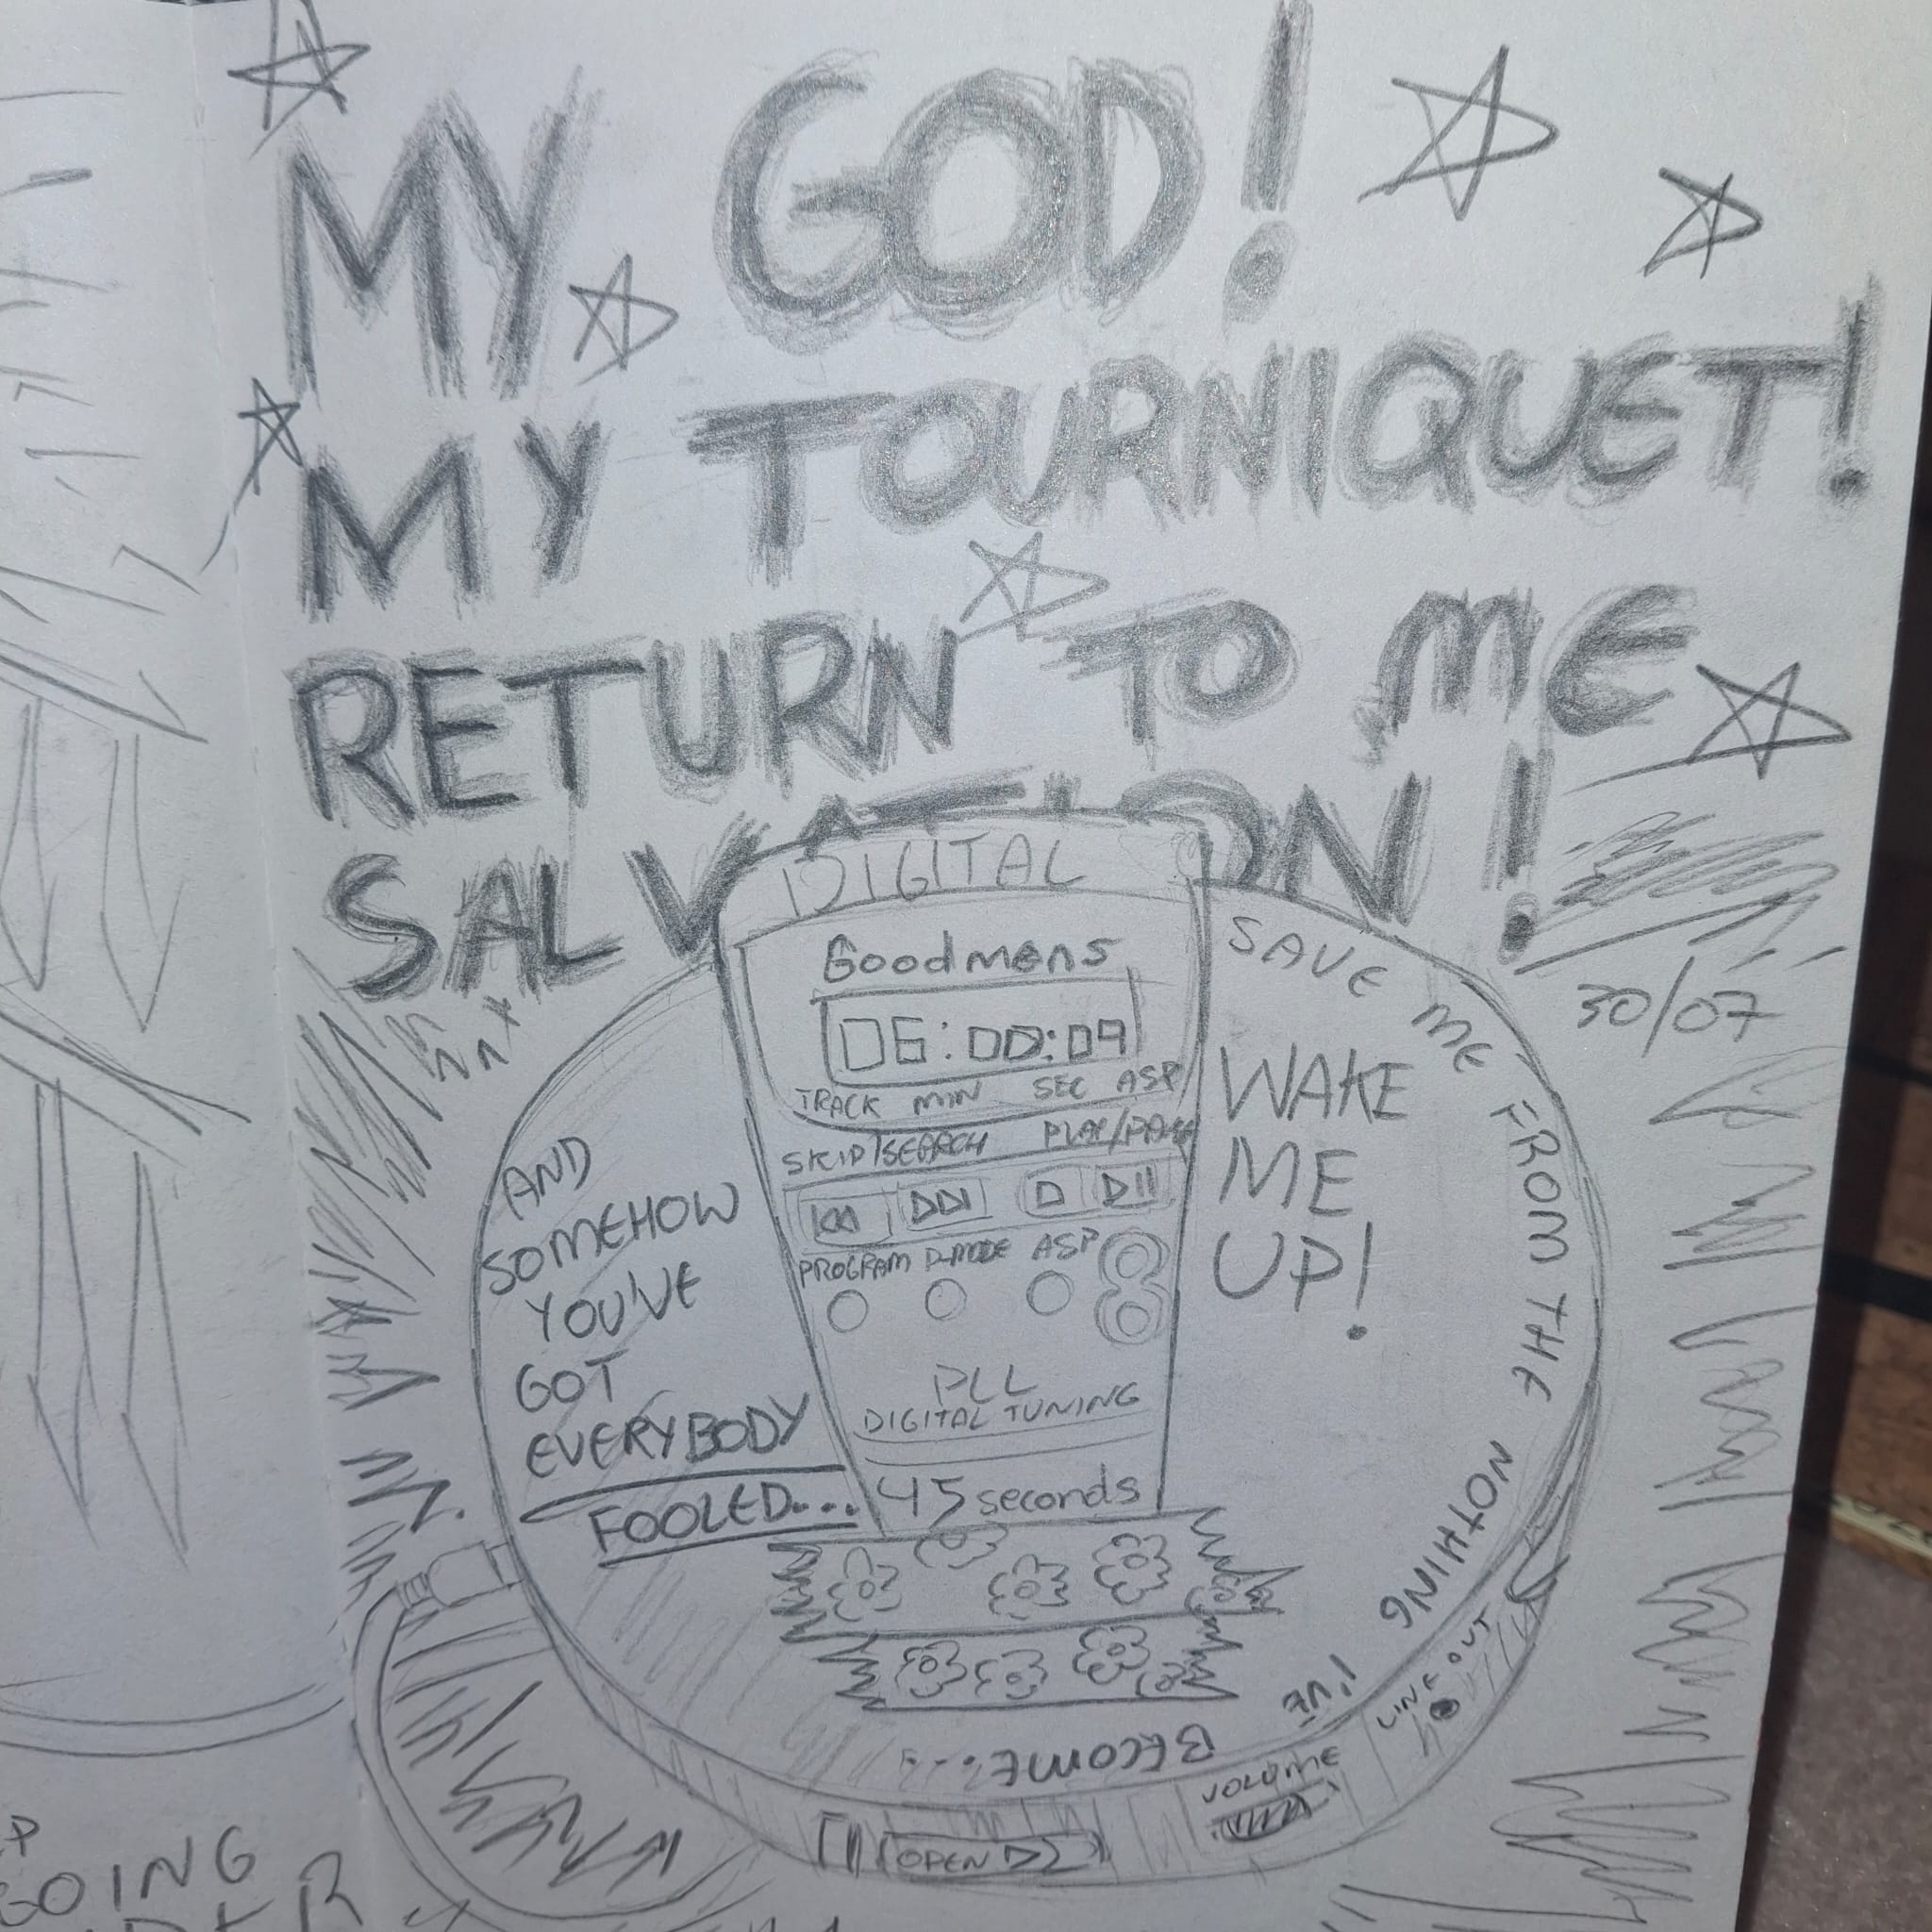 MY GOD!
MY TOURNIQUET!
RETURN TO ME
SALVATION!
DIGITAL
Goodmans
06:00:09
TRACK MIN SEC ASP
SKIP/SEARCH PLAY/PAUSE
PROGRAM P-MODE ASP
PLL
DIGITAL TUNING
45 seconds
30/07
AND
SOMEHOW
YOU'VE
GOT
EVERYBODY
FOOLED...
WAKE
ME
UP!
SAVE ME FROM THE NOTHING I'VE BECOME....
LINE OUT
VOLUME
OPEN
GOING